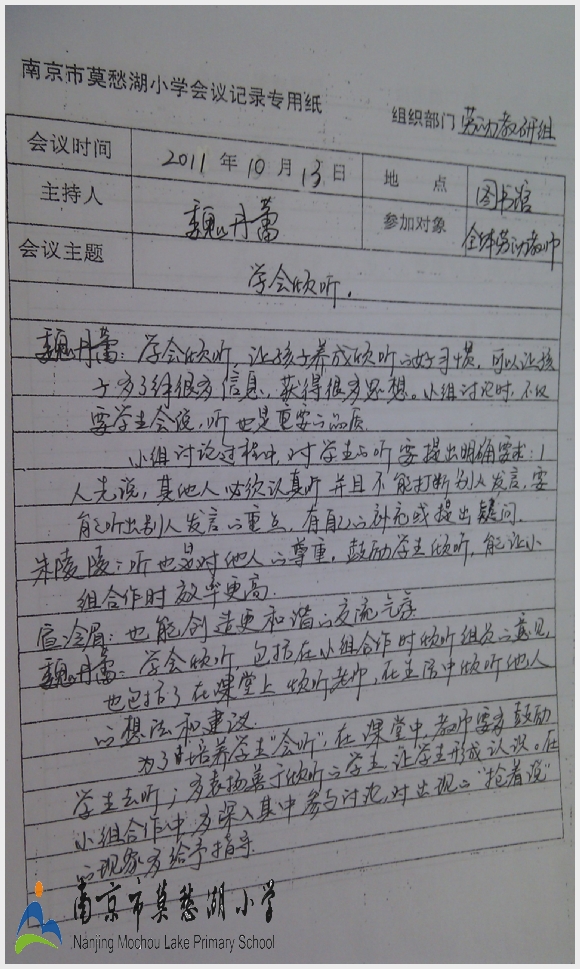 南京市莫愁湖小学会议记录专用纸
组织部门 劳动教研组
会议时间 2011年10月13日 地点 图书馆
主持人 魏丹蕾 参加对象 全体劳动教师
会议主题 学会倾听.
魏丹蕾：学会倾听，让孩子养成倾听的好习惯，可以让孩
子多了解很多信息，获得很多思想。小组讨论时，不仅
要学生会说，听也是重要的品质.
小组讨论过程中，对学生的听要提出明确要求：1
人先说，其他人必须认真听并且不能打断别人发言，要
能听出别人发言的重点，有自己的补充或提出疑问.
朱陵陵：听也是对他人的尊重，鼓励学生倾听，能让小
组合作时效率更高.
宣冷眉：也能创造更和谐的交流气氛.
魏丹蕾：学会倾听，包括在小组合作时倾听组员的意见，
也包括了在课堂上倾听老师，在生活中倾听他人
的想法和建议.
为了培养学生“会听”，在课堂中，教师要多鼓励
学生去听；多表扬善于倾听的学生，让学生形成认识。在
小组合作中，多深入其中参与讨论，对出现的“抢着说”
的现象多给予指导.
南京市莫愁湖小学
Nanjing Mochou Lake Primary School